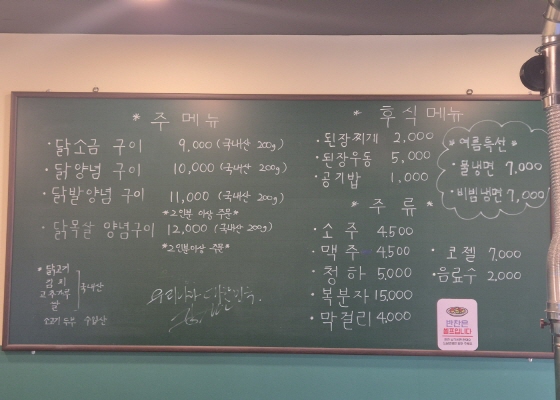 * 주 메뉴
· 닭소금 구이 9,000 (국내산 200g)
· 닭양념 구이 10,000 (국내산 200g)
· 닭발양념 구이 11,000 (국내산 200g)
*2인분 이상 주문*
· 닭목살 양념구이 12,000 (국내산 200g)
*2인분이상 주문*
* 닭고기
김치
고추가루
쌀
국내산
소고기 두부 수입산
* 후식메뉴
· 된장찌개 2,000
· 된장우동 5,000
· 공기밥 1,000
* 여름특선
· 물냉면 7,000
· 비빔냉면 7,000
* 주 류 *
· 소 주 4,500
· 맥 주 4,500
· 청 하 5,000
· 복분자 15,000
· 막걸리 4,000
· 코젤 7,000
· 음료수 2,000
반찬은
셀프입니다